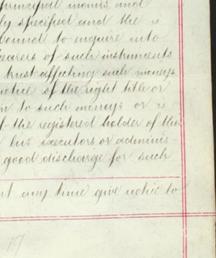 principal monies and
ly specified and the is
Council to enquire into
bearers of such instruments
trust affecting such moneys
notice of the right title or
in to such moneys or is
f the registered holder of the
his executors or adminis
good discharge for such
at any time give notice to